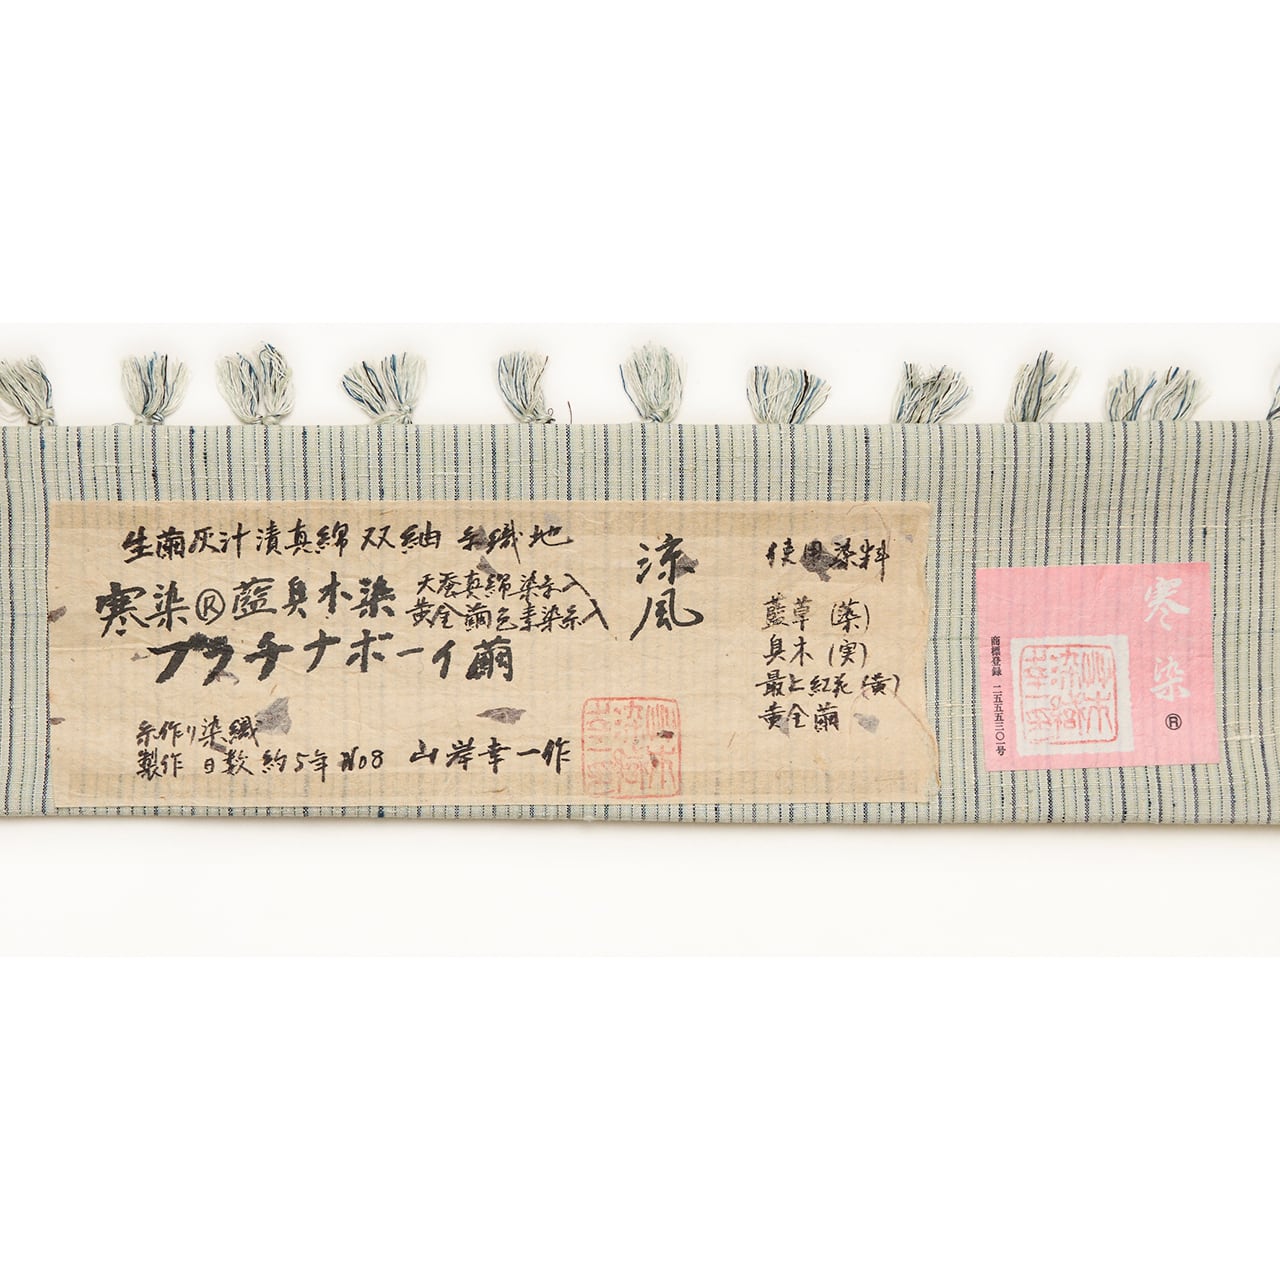 生繭灰汁漬真綿双紬 手織地
寒染®藍臭木染
天蚕真綿染糸入
黄金繭色素染糸入
プラチナボーイ繭
糸作り染織
製作日数約5年 No8 山岸幸一作
涼風
使用染料
藍草(葉)
臭木(実)
最上紅花(黄)
黄金繭
寒染®
商標登録 二五五五三〇一号